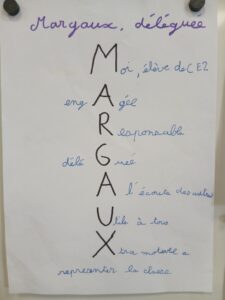 Margaux, déléguée
Moi, élève de CE2
engAgée
Responsable
déléGuée
A l'écoute des autres
Utile à tous
Xtra motivée a
représenter la classe